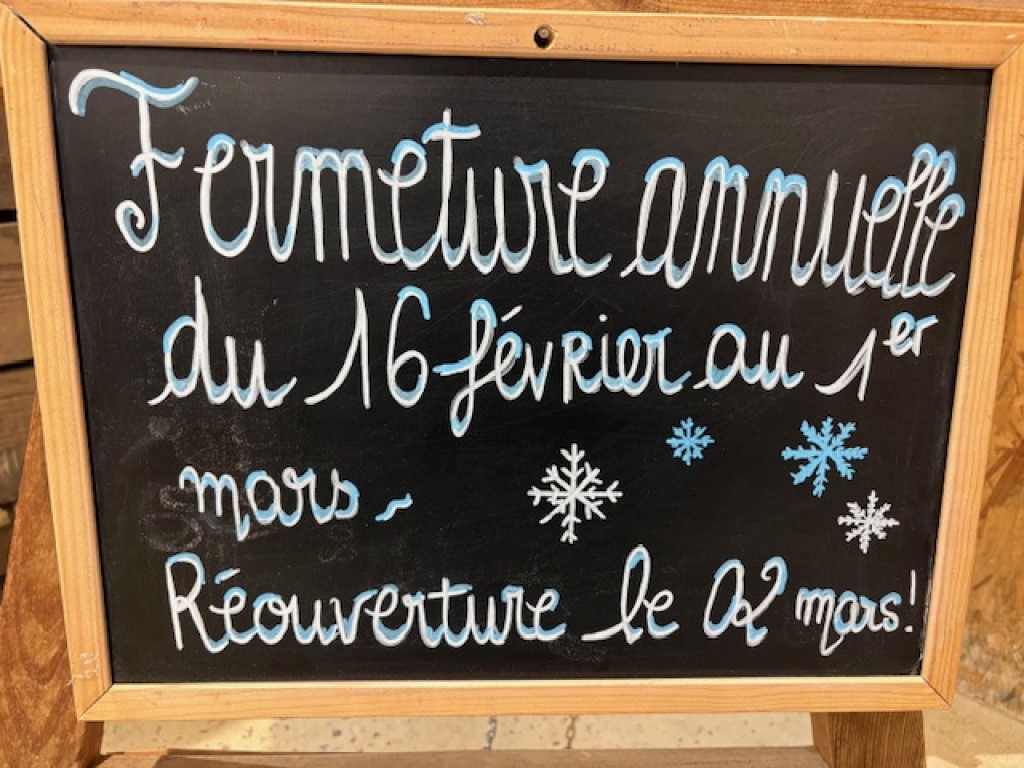 Fermeture annuelle
du 16 février au 1er
mars ~
Réouverture le 02 mars!